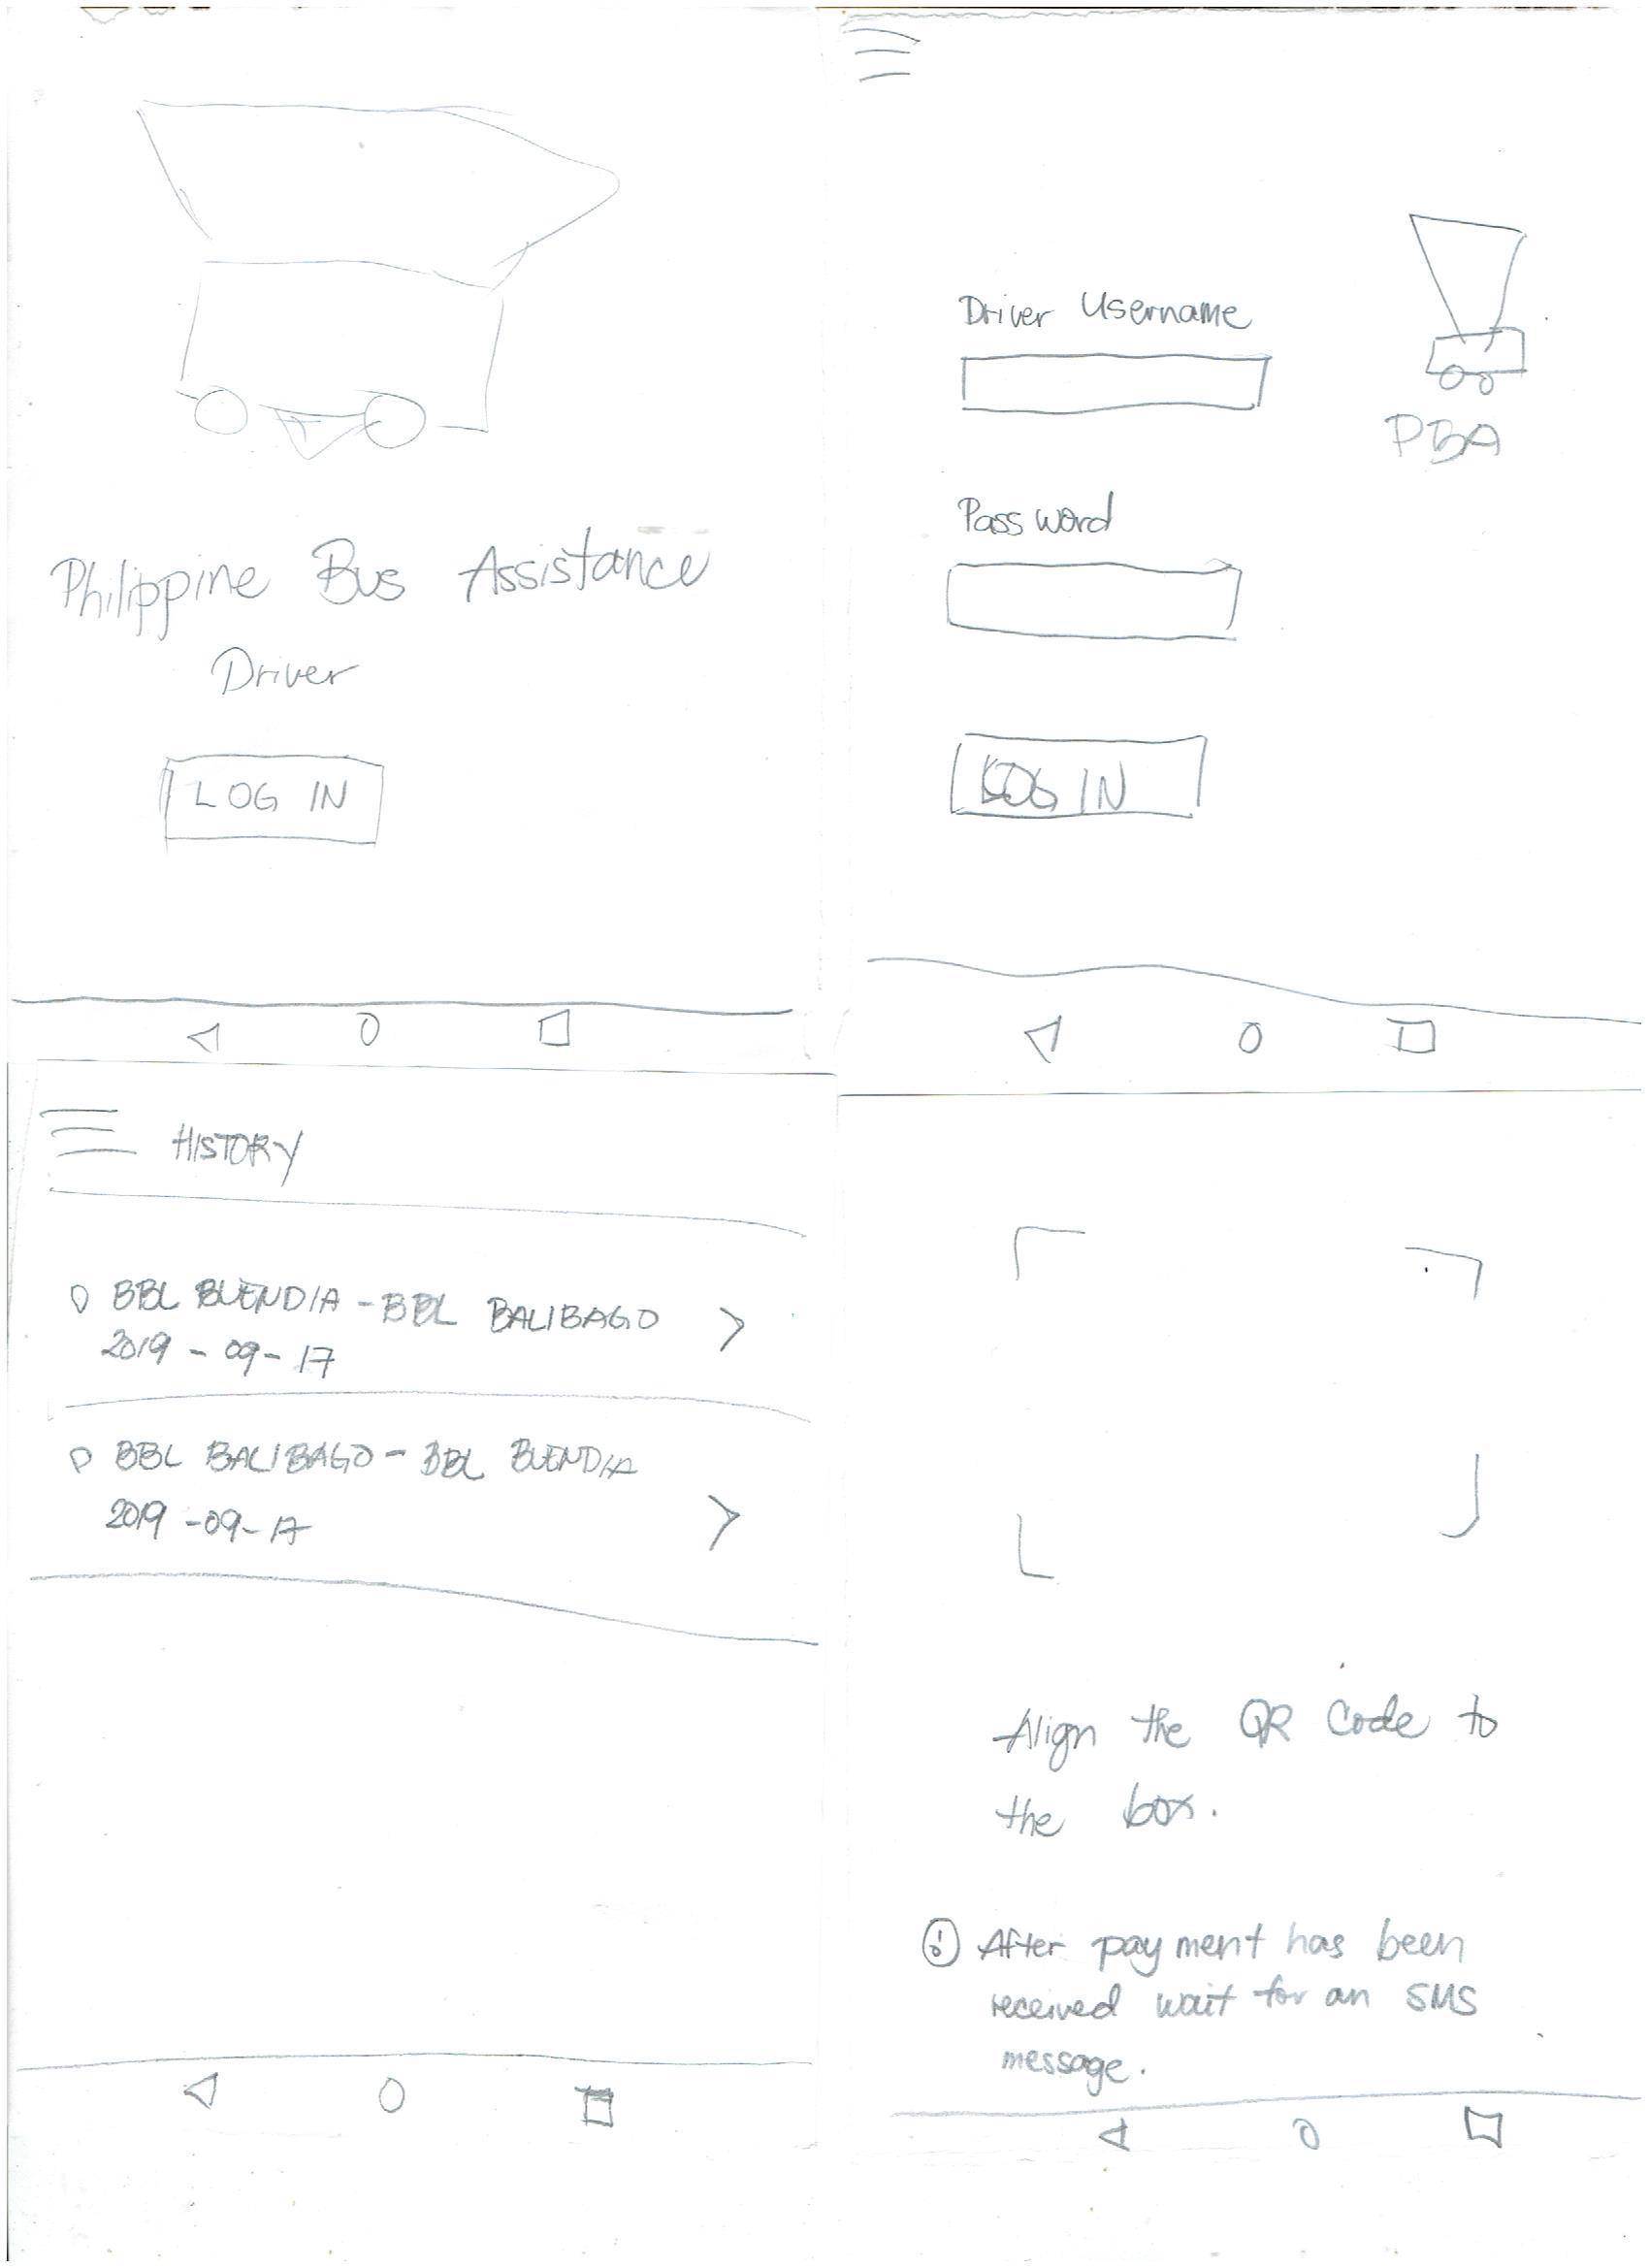 Philippine Bus Assistance
Driver
LOG IN
Driver Username
PBA
Password
LOG IN
HISTORY
BBL BUENDIA - BBL BALIBAGO
2019 - 09 - 17
>
BBL BALIBAGO - BBL BUENDIA
2019 - 09 - 17
>
Align the QR Code to
the box.
! After payment has been
received wait for an SMS
message.